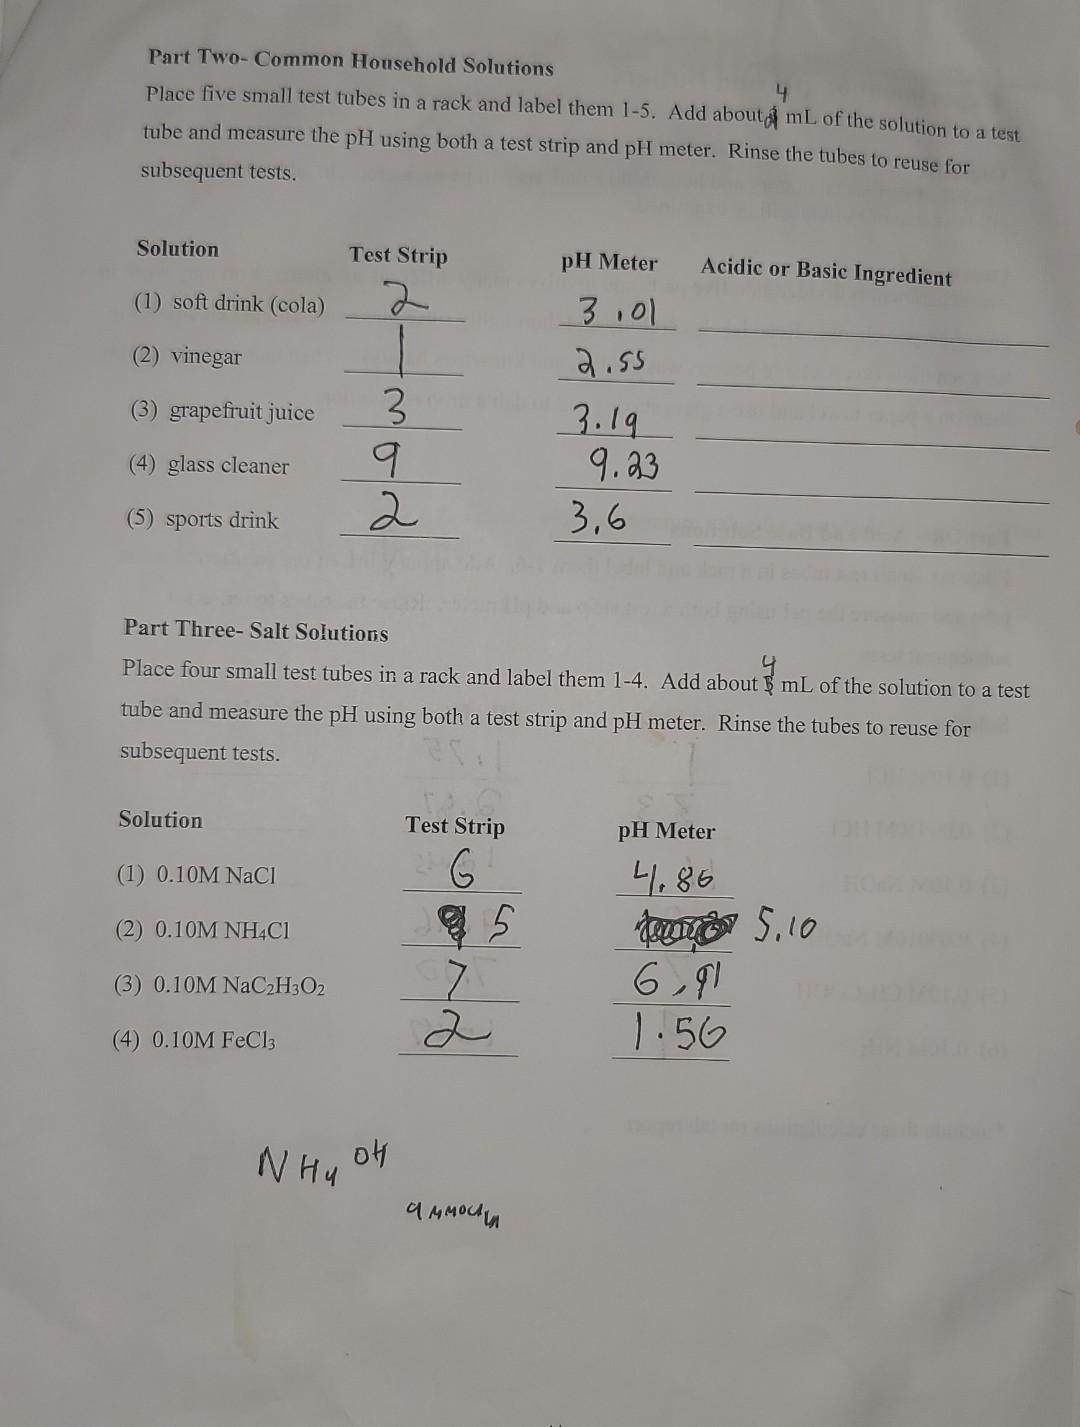 Part Two- Common Household Solutions
4
Place five small test tubes in a rack and label them 1-5. Add about mL of the solution to a test
tube and measure the pH using both a test strip and pH meter. Rinse the tubes to reuse for
subsequent tests.
Solution Test Strip pH Meter Acidic or Basic Ingredient
(1) soft drink (cola) 2 3.01
(2) vinegar 1 2.55
(3) grapefruit juice 3 3.19
(4) glass cleaner 9 9.23
(5) sports drink 2 3.6
Part Three- Salt Solutions
4
Place four small test tubes in a rack and label them 1-4. Add about mL of the solution to a test
tube and measure the pH using both a test strip and pH meter. Rinse the tubes to reuse for
subsequent tests.
Solution Test Strip pH Meter
(1) 0.10M NaCl 6 4.86
(2) 0.10M NH₄Cl 5 5.10
(3) 0.10M NaC₂H₃O₂ 7 6.91
(4) 0.10M FeCl₃ 2 1.56
NH₄OH